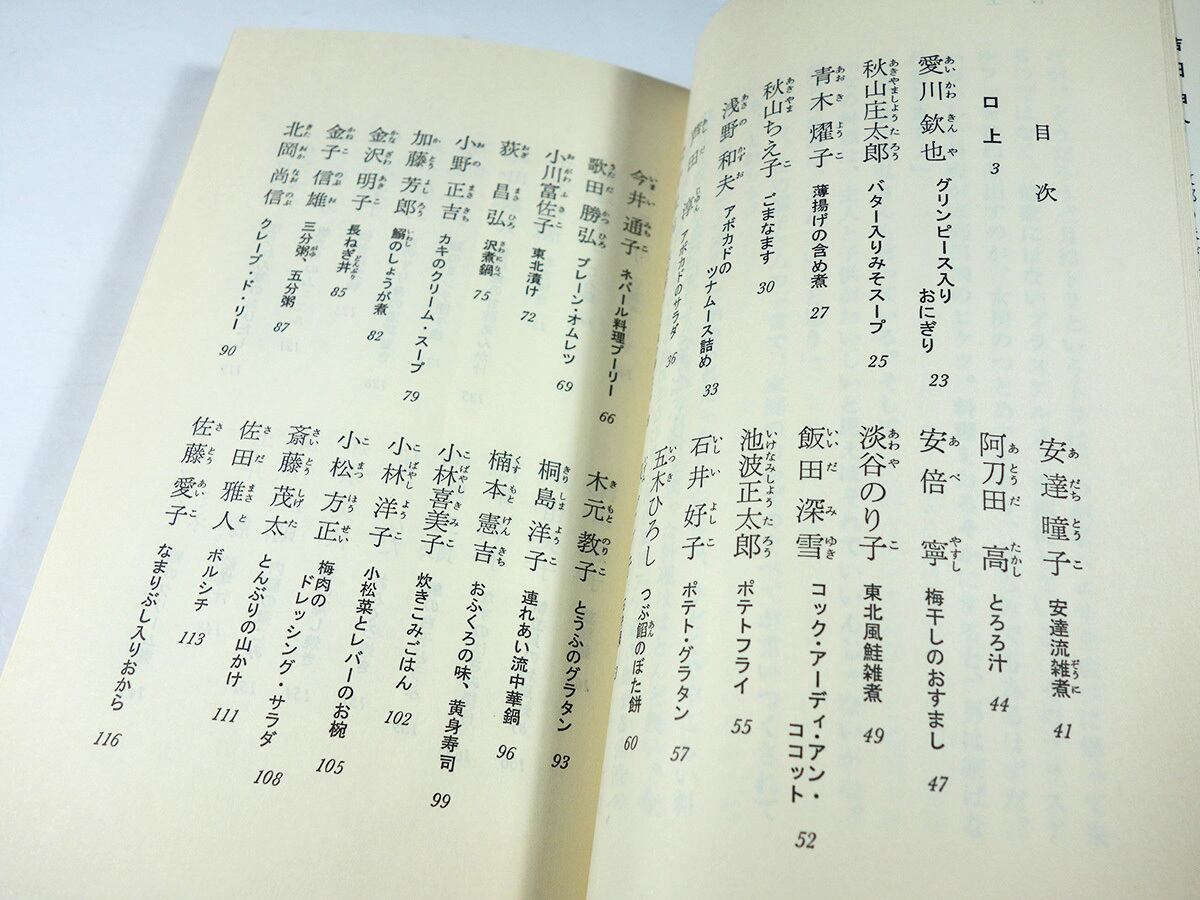 目次
口上 3
愛川欽也 グリンピース入りおにぎり 23
秋山庄太郎 バター入りみそスープ 25
青木燿子 薄揚げの含め煮 27
秋山ちえ子 ごまなます 30
浅野和夫 アボカドのツナムース詰め 33
アボカドのサラダ 36
安達瞳子 安達流雑煮 41
阿刀田高 とろろ汁 44
安倍寧 梅干しのおすまし 47
淡谷のり子 東北風鮭雑煮 49
飯田深雪 コック・アーディ・アン・ココット 52
池波正太郎 ポテトフライ 55
石井好子 ポテト・グラタン 57
五木ひろし つぶ餡のぼた餅 60
今井通子 ネパール料理プーリー 66
歌田勝弘 プレーン・オムレツ 69
小川富佐子 東北漬け 72
荻昌弘 沢煮鍋 75
小野正吉 カキのクリーム・スープ 79
加藤芳郎 鰯のしょうが煮 82
金沢明子 長ねぎ丼 85
金子信雄 三分粥、五分粥 87
北岡尚信 クレープ・ド・リー 90
木元教子 とうふのグラタン 93
桐島洋子 連れあい流中華鍋 96
楠本憲吉 おふくろの味、黄身寿司 99
小林喜美子 炊きこみごはん 102
小林洋子 小松菜とレバーのお椀 105
小松方正 梅肉のドレッシング・サラダ 108
斎藤茂太 とんぶりの山かけ 111
佐田雅人 ボルシチ 113
佐藤愛子 なまりぶし入りおから 116